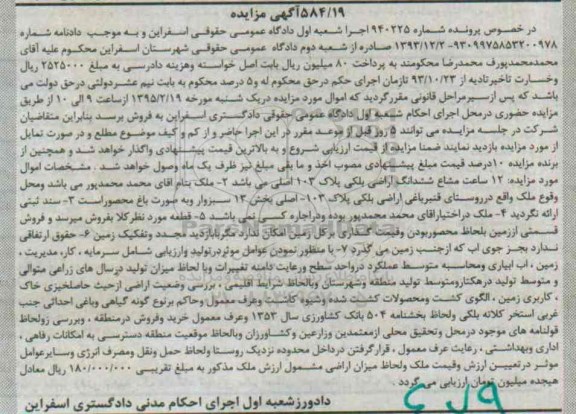 ۵۸۴/۱۹آگهی مزایده
در خصوص پرونده شماره ۹۴۰۲۲۵ اجرا شعبه اول دادگاه عمومی حقوقی اسفراین و به موجب دادنامه شماره
۹۳۰۹۹۷۵۸۵۳۲۰۰۹۷۸-۱۳۹۳/۱۲/۲ صادره از شعبه دوم دادگاه عمومی حقوقی شهرستان اسفراین محکوم علیه آقای
محمدمحمدپورف محمدرضا محکومند به پرداخت ۸۰ میلیون ریال بابت اصل خواسته وهزینه دادرسی به مبلغ ۲۵۲۵۰۰۰ ریال
وخسارت تاخیرتادیه از ۹۳/۱۰/۲۳ تازمان اجرای حکم درحق محکوم له و۵ درصد محکوم به بابت نیم عشردولتی درحق دولت می
باشد که پس ازسیرمراحل قانونی مقررگردید که اموال مورد مزایده دریک شنبه مورخه ۱۳۹۵/۲/۱۹ ازساعت ۹ الی ۱۰ از طریق
مزایده حضوری درمحل اجرای احکام شعبه اول دادگاه عمومی حقوقی دادگستری اسفراین به فروش برسد بنابراین متقاضیان
شرکت در جلسه مزایده می توانند ۵ روز قبل از موعد مقرر در این اجرا حاضر و از کم و کیف موضوع مطلع و در صورت تمایل
از مورد مزایده بازدید نمایند ضمنا مزایده از قیمت ارزیابی شروع و به بالاترین قیمت پیشنهادی واگذار خواهد شد و همچنین از
برنده مزایده ۱۰درصد قیمت مبلغ پیشنهادی مصوب اخذ و ما بقی مبلغ نیز ظرف یک ماه وصول خواهد شد . مشخصات اموال
مورد مزایده: ۱۲ ساعت مشاع ششدانگ اراضی بلکی پلاک ۱۰۳ اصلی می باشد ۲- ملک بنام اقای محمد محمدپور می باشد ومحل
وقوع ملک واقع درروستای قنبرباغی اراضی پلاک ۱۰۳- اصلی بخش ۱۲ سبزوار وبه صورت باغ محصوراست ۳- سند ثبتی
ارائه نگردید ۴- ملک دراختیاراقای محمد محمدپور بوده ودراجاره کسی نمی باشد ۵- قطعه مورد نظرکلا بفروش میرسد و فروش
قسمتی اززمین بلحاظ محصوربودن وقیمت گذاری درکل زمین امکان ندارد مگربازدید مجدد وتفکیک زمین ۶- حقوق ارتفاقی
ندارد بجز جوی اب که ازجنب زمین می گذرد ۷- با منظور نمودن عوامل موثردرتولید وارزیابی شامل سرمایه ، کار، مدیریت ،
زمین ، اب ابیاری ومحاسبه متوسط عملکرد درواحد سطح ورعایت دامنه تغییرات وبا لحاظ میزان تولید درسال های زراعی متوالی
و متوسط تولید درهکتارومتوسط تولید منطقه وشهرستان وبالحاظ شرایط اقلیمی ، بررسی وضعیت اراضی ازحیث حاصلخیزی خاک
، کاربری زمین ، الگوی کشت ومحصولات کشت شده وشیوه کاشت وعرف معمول وحاکم برنوع گونه گیاهی وباغی احداثی جنب
غربی استخر کلاته بلکی ولحاظ بخشنامه ۵۰۴ بانک کشاورزی سال ۱۳۵۳ وعرف معمول خرید وفروش درمنطقه ، وبررسی زولحاظ
قولنامه های موجود درمحل وتحقیق محلی ازمعتمدین وزارعین وکشاورزان وبالحاظ موقعیت منطقه دسترسی به امکانات رفاهی ،
اداری وبهداشتی ، رعایت عرف معمول ، قرارگرفتن درداخل محدوده نزدیک روستا ولحاظ حمل ونقل ومصرف انرژی وسایرعوامل
موثر درتعیین ارزش وقیمت ملک ولحاظ میزان اراضی مشمول ارزش ملک مذکور به مبلغ تقریبی ۱۸۰/۰۰۰/۰۰۰ ریال معادل
هیجده میلیون تومان ارزیابی می گردد .
دادورزشعبه اول اجرای احکام مدنی دادگستری اسفراین